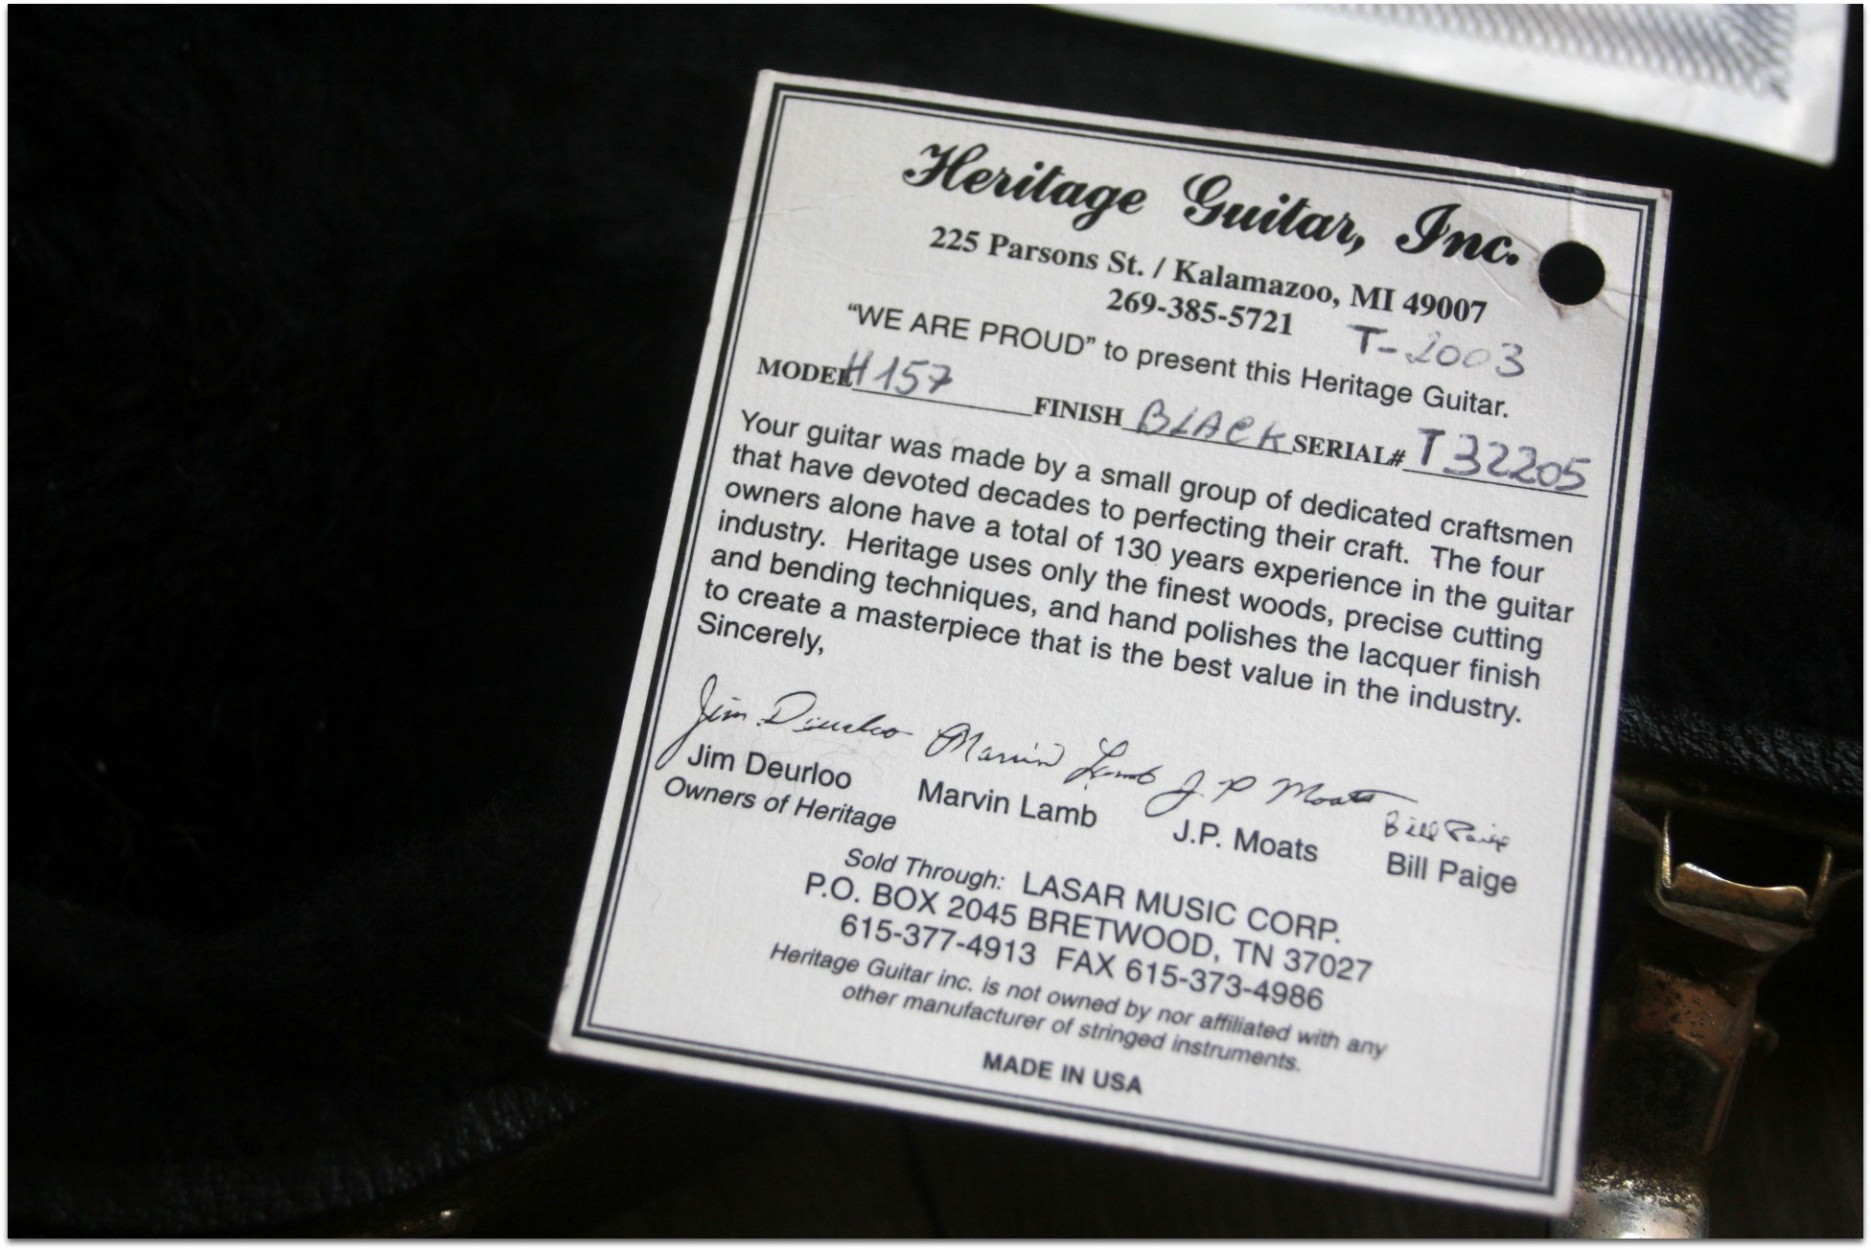 Heritage Guitar, Inc.
225 Parsons St. / Kalamazoo, MI 49007
269-385-5721 T-2003
"WE ARE PROUD" to present this Heritage Guitar.
MODEL H157 FINISH BLACK SERIAL# T32205
Your guitar was made by a small group of dedicated craftsmen
that have devoted decades to perfecting their craft. The four
owners alone have a total of 130 years experience in the guitar
industry. Heritage uses only the finest woods, precise cutting
and bending techniques, and hand polishes the lacquer finish
to create a masterpiece that is the best value in the industry.
Sincerely,
Jim Deurloo Marvin Lamb J. P Moats Bill Paige
Jim Deurloo Marvin Lamb J.P. Moats Bill Paige
Owners of Heritage
Sold Through: LASAR MUSIC CORP.
P.O. BOX 2045 BRETWOOD, TN 37027
615-377-4913 FAX 615-373-4986
Heritage Guitar inc. is not owned by nor affiliated with any
other manufacturer of stringed instruments.
MADE IN USA